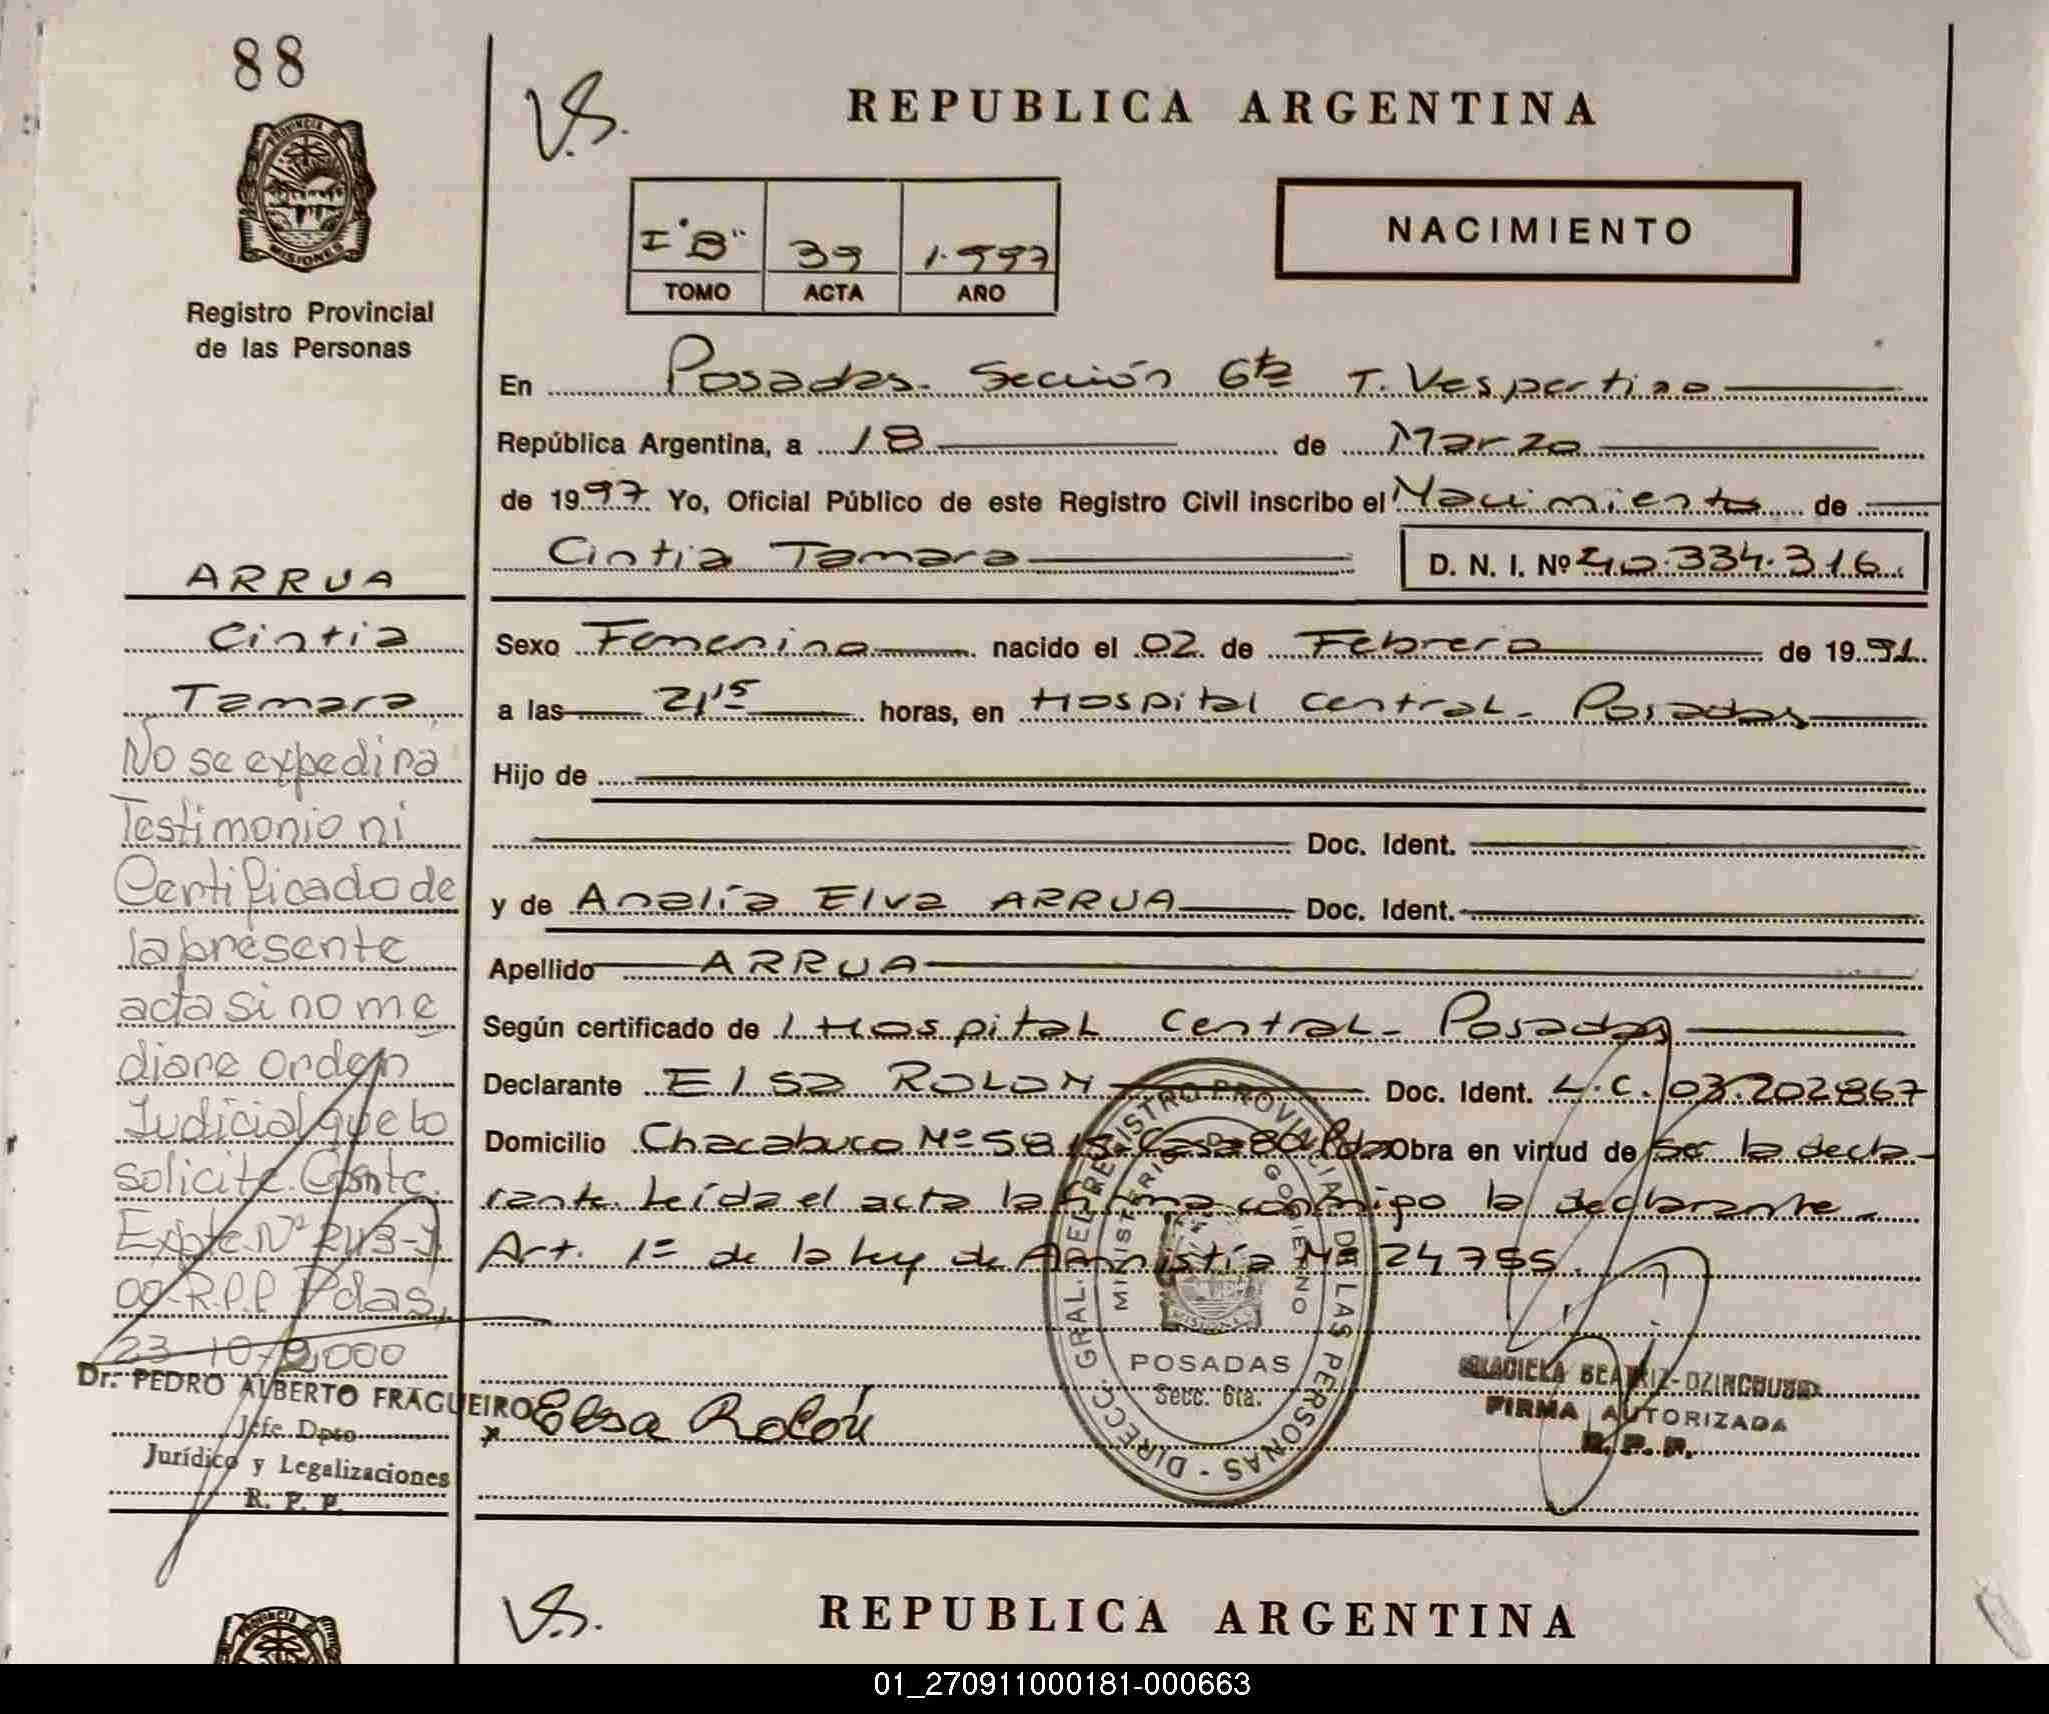 88
V.S.
REPUBLICA ARGENTINA
PROVINCIA DE
MISIONES
Registro Provincial
de las Personas
I "B" 39 1.997
TOMO ACTA AÑO
NACIMIENTO
En Posadas. Sección 6ta T. Vespertino
República Argentina, a 18 de Marzo
de 1997 Yo, Oficial Público de este Registro Civil inscribo el Nacimiento de
Cintia Tamara D. N. I. Nº 40.334.316
Sexo Femenino nacido el 02 de Febrero de 1991
a las 21,15 horas, en Hospital Central - Posadas
Hijo de
Doc. Ident.
y de Analía Elva ARRUA Doc. Ident.
Apellido ARRUA
Según certificado de l Hospital Central - Posadas
Declarante Elsa ROLON Doc. Ident. L.C. 03.202867
Domicilio Chacabuco Nº 5815. Casa 80 Pdas Obra en virtud de ser la decla-
rante. Leída el acta la firma conmigo la declarante.
Art. 1º de la ley de Amnistía Nº 24755.
ARRUA
Cintia
Tamara
No se expedirá
Testimonio ni
Certificado de
la presente
acta si no me
diare orden
Judicial que lo
solicite. Const.
Expte. Nº 2113-J-
00-R.P.P Pdas,
23-10-2,000
Dr. PEDRO ALBERTO FRAGUEIRO
Jefe Dpto
Jurídico y Legalizaciones
R. P. P.
x Elsa Rolón
DIRECC. GRAL. DEL REGISTRO PROVINCIAL DE LAS PERSONAS -
MINISTERIO DE GOBIERNO
MISIONES
POSADAS
Secc. 6ta.
BEATRIZ
FIRMA AUTORIZADA
R. P. P.
V.S.
REPUBLICA ARGENTINA
PROVINCIA
01_270911000181-000663